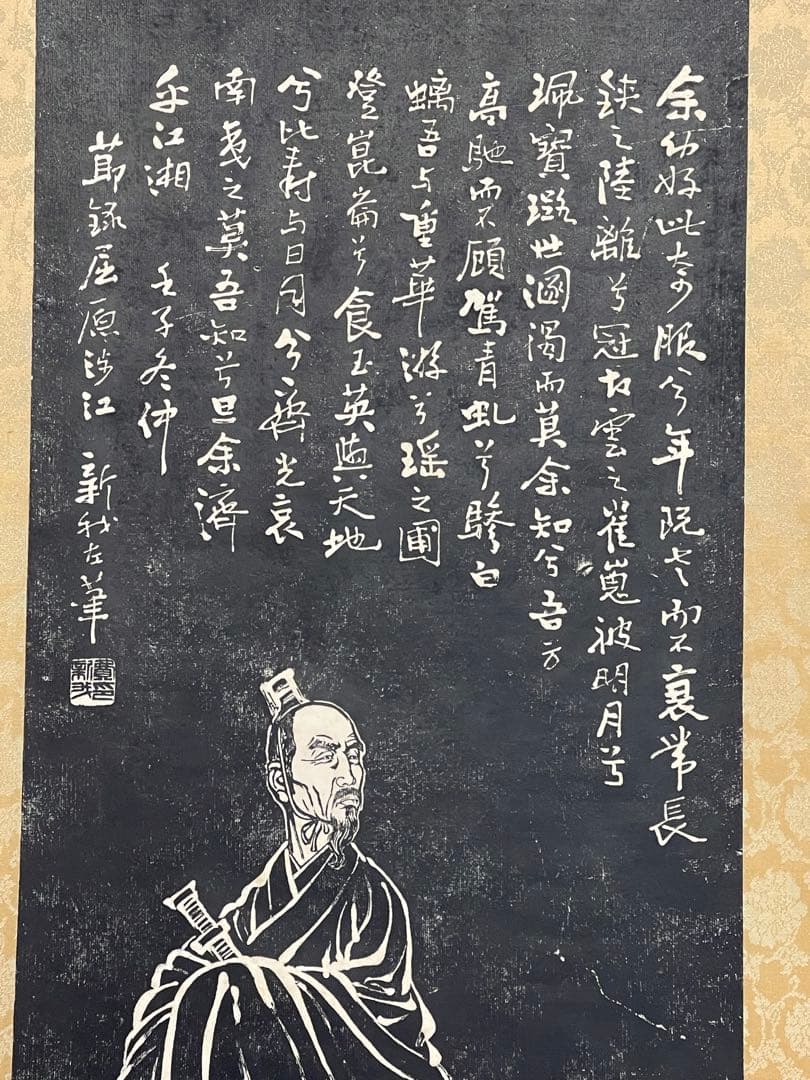 余幼好此奇服兮年既老而不衰帶長
鋏之陸離兮冠切雲之崔嵬被明月兮
珮寶璐世溷濁而莫余知兮吾方
高馳而不顧駕青虬兮驂白
螭吾与重華游兮瑶之圃
登崑崙兮食玉英與天地
兮比寿与日月兮齊光哀
南夷之莫吾知兮旦余濟
乎江湘 壬子冬仲
節錄屈原涉江 新我左筆
費新我印